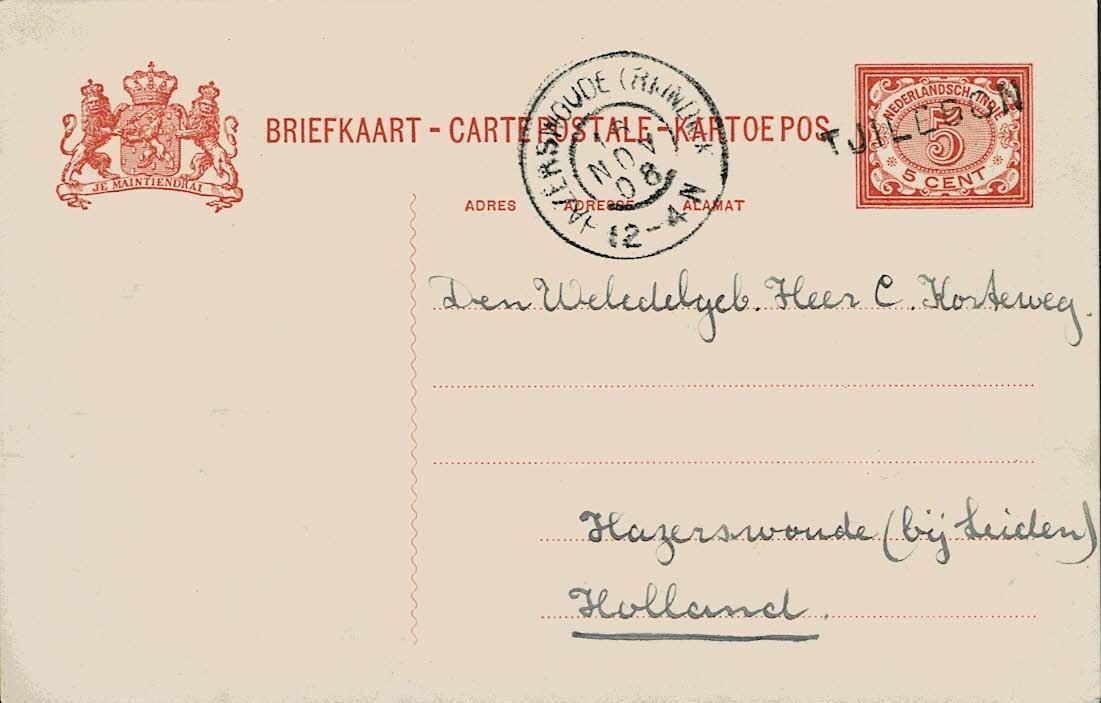 JE MAINTIENDRAI
BRIEFKAART - CARTE POSTALE - KARTOE POS.
ADRES ADRESSE ALAMAT
HAZERSWOUDE (RIJNDIJK
NOV
08
12-4N
NEDERLANDSCH-INDIE
5
5 CENT
TJILEGON
Den Weledelgeb. Heer C. Korteweg.
Hazerswoude (bij Leiden)
Holland.